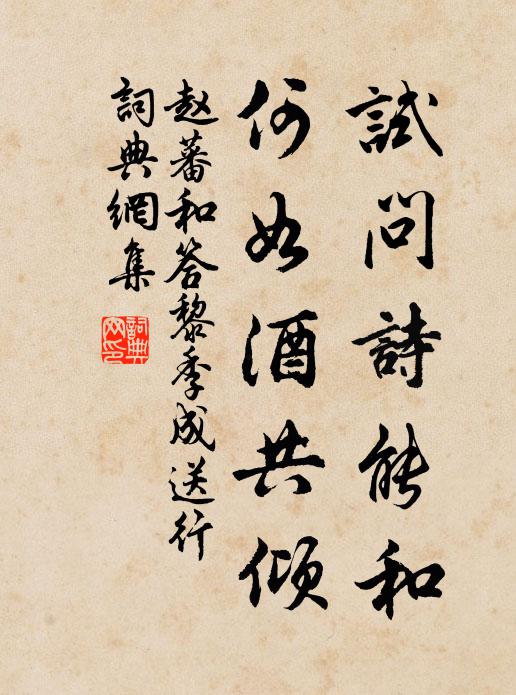 試問詩能和
何如酒共傾
赵蕃和答黎季成送行
詞典網集
詞典網印